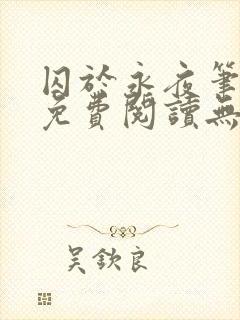 囚於永夜筆
免費閱讀無
吳欽良